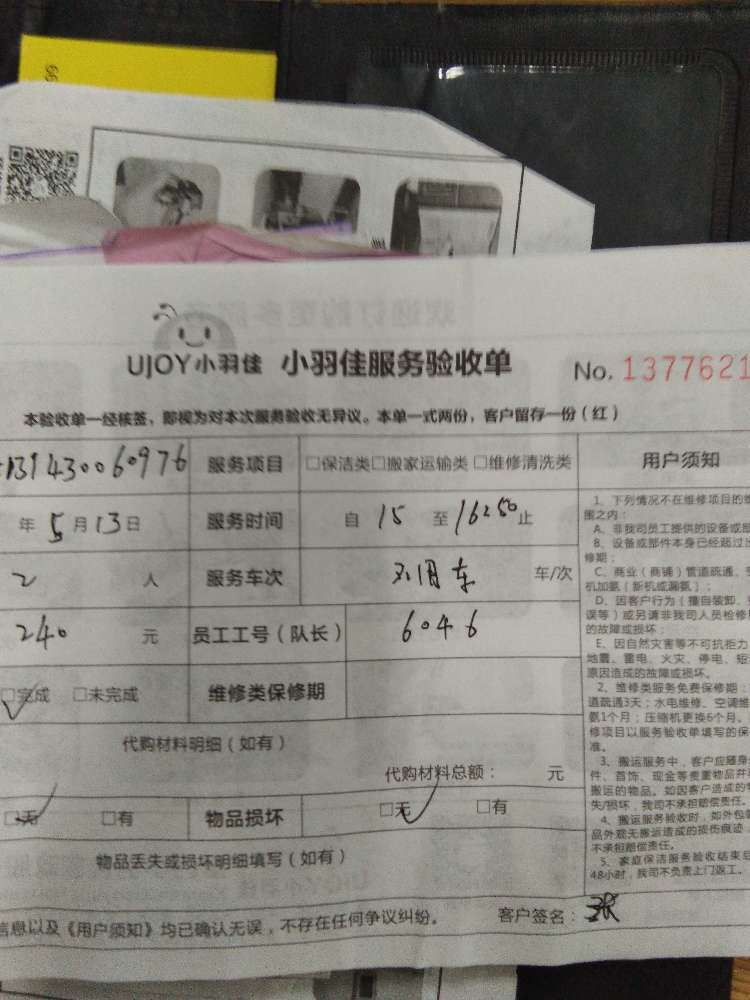 UJOY小羽佳 小羽佳服务验收单 No. 1377621
本验收单一经核签，即视为对本次服务验收无异议。本单一式两份，客户留存一份（红）
139430060976 服务项目 □保洁类□搬家运输类□维修清洗类 用户须知
年5月13日 服务时间 自 15 至 16:50止
2 人 服务车次 不用车 车/次
240 元 员工工号（队长） 6046
□完成 □未完成 维修类保修期
代购材料明细（如有）
代购材料总额： 元
□无 □有 物品损坏 □无 □有
物品丢失或损坏明细填写（如有）
信息以及《用户须知》均已确认无误，不存在任何争议纠纷。 客户签名：
1、下列情况不在维修项目的
围之内：
A、非我司员工提供的设备或部
B、设备或部件本身已经超过
修期；
C、商业（商铺）管道疏通、
机加氨（新机或漏氨）；
D、因客户行为（擅自装卸、
误等）或另请非我司人员检修
的故障或损坏；
E、因自然灾害等不可抗拒力
地震、雷电、火灾、停电、短
原因造成的故障或损坏。
2、维修类服务免费保修期：
道疏通3天；水电维修、空调维
氨1个月；压缩机更换6个月。
修项目以服务验收单填写的保
准。
3、搬运服务中，客户应随身
件、首饰、现金等贵重物品并
搬运的物品。如因客户造成的
失/损坏，我司不承担赔偿责任。
4、搬运服务验收时，如外包
品外观无搬运造成的损伤痕迹，
不承担赔偿责任。
5、家庭保洁服务验收结束后
48小时，我司不负责上门返工。